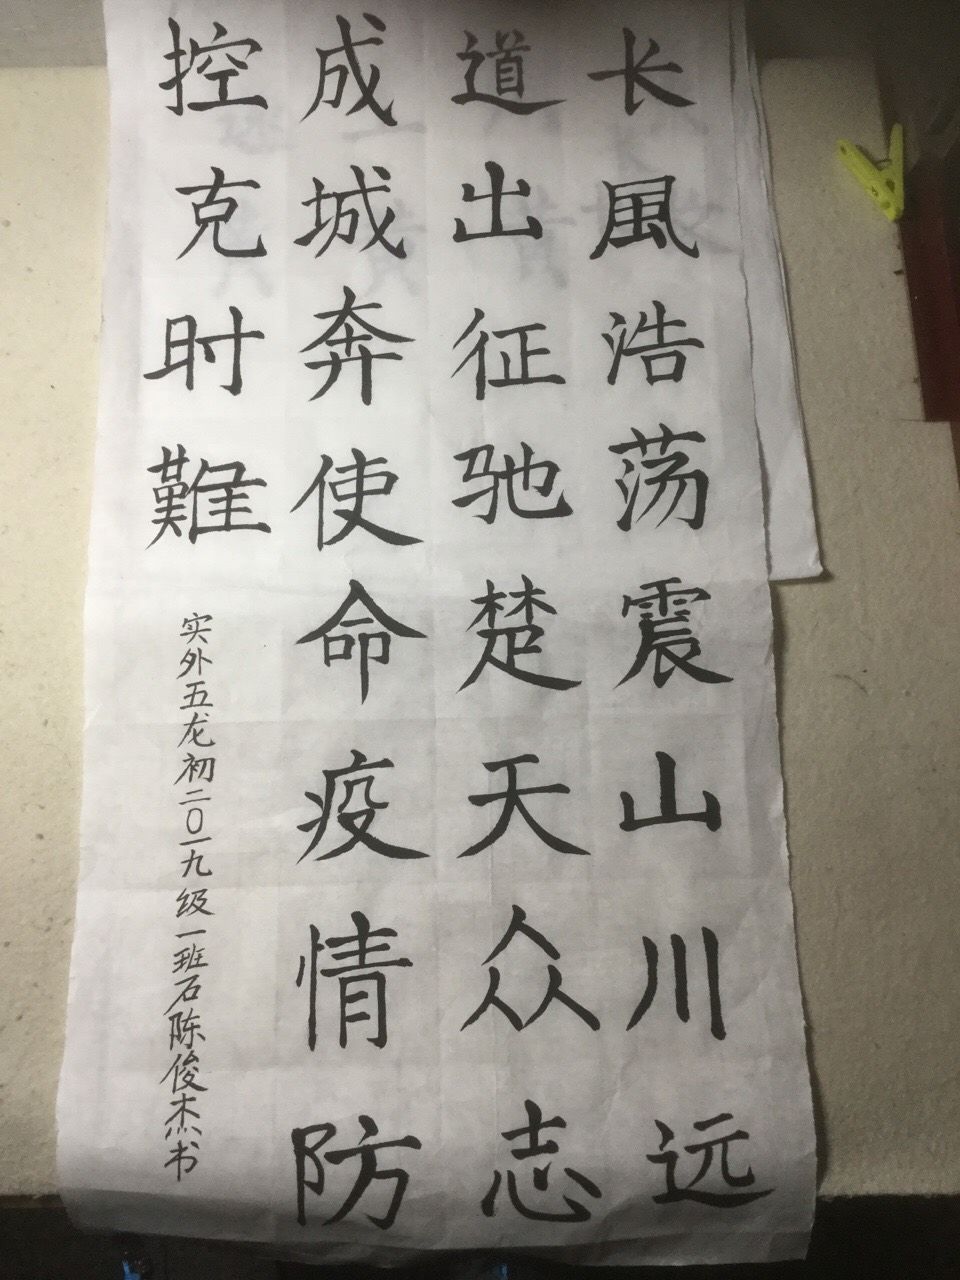 长風浩荡震山川远
道出征驰楚天众志
成城奔使命疫情防
控克时難
实外五龙初二〇一九级一班石陈俊杰书